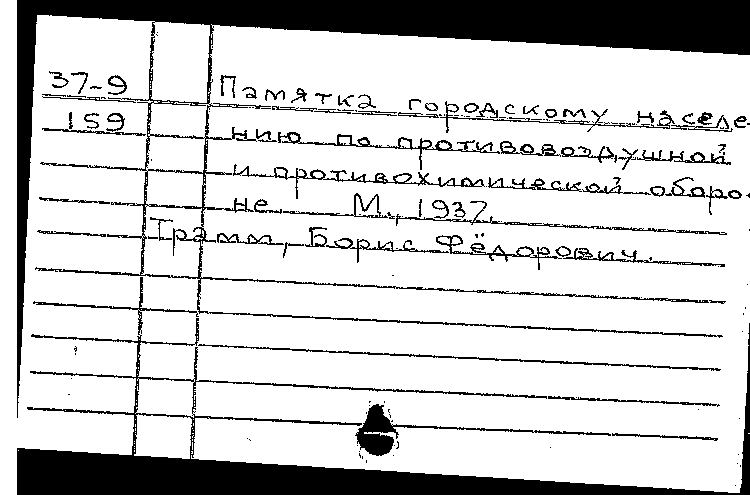 37-9 Памятка городскому населе-
159 нию по противовоздушной
и противохимической оборо-
не М., 1937.
Трамм, Борис Фёдорович.